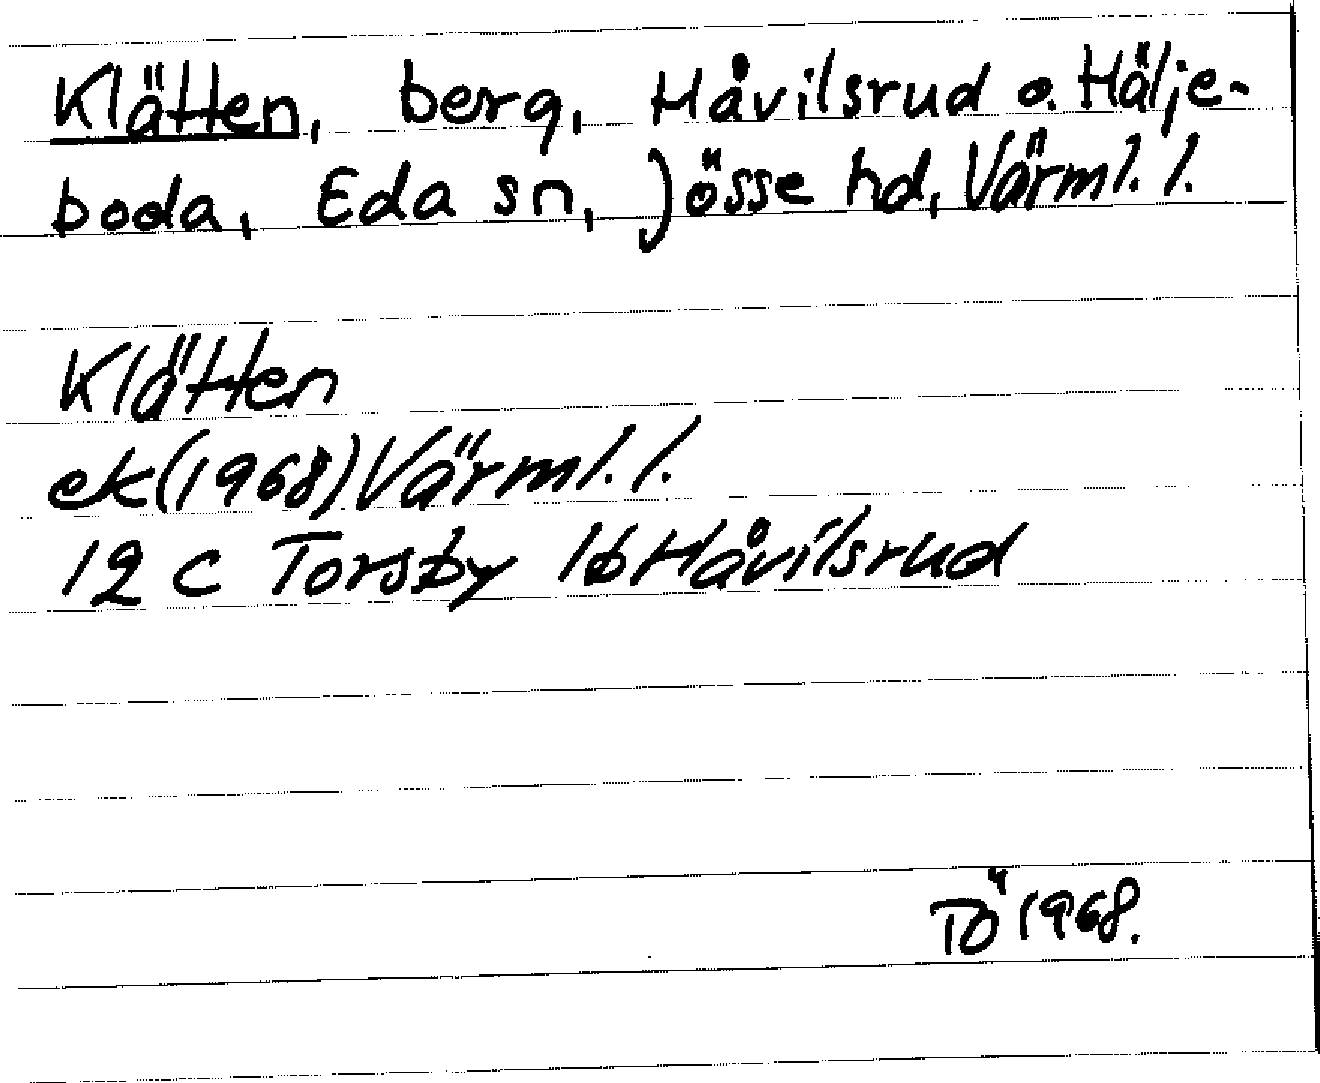 Klätten, berg, Håvilsrud o. Hälje-
boda, Eda sn, Jösse hd, Värml. l.
Klätten
ek (1968) Värml. l.
12 C Torsby 1b Håvilsrud
TÖ 1968.